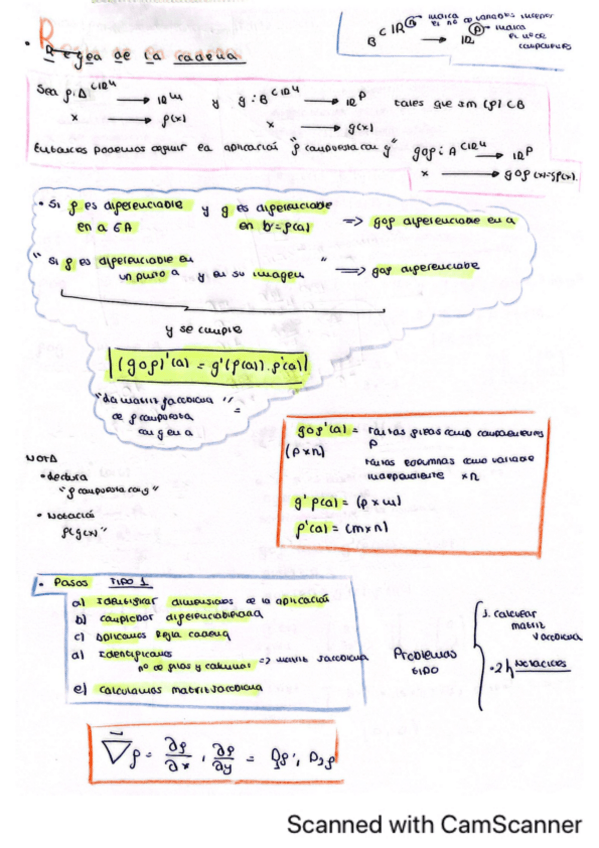 B ⊂ ℝⁿ → ℝᵖ
n marca el nº de variables indepen
p marca el nº de componentes
• Regla de la cadena
Sea f: A ⊂ ℝⁿ → ℝᵐ y g: B ⊂ ℝᵐ → ℝᵖ tales que Im(f) ⊂ B
x → f(x) x → g(x)
Entonces podemos definir la aplicación "f compuesta con g" gof: A ⊂ ℝⁿ → ℝᵖ
x → gof(x)=g(f(x)).
• Si f es diferenciable y g es diferenciable
en a ∈ A en b=f(a) => gof diferenciable en a
"Si f es diferenciable en
un punto a y en su imagen" => gof diferenciable
y se cumple
(gof)'(a) = g'(f(a)).f'(a)
"La matriz jacobiana
de f compuesta
con g en a" =
gof'(a) = tantas filas como componentes
(p×n) p
tantas columnas como variable
independiente × n
g'f(a) = (p×m)
f'(a) = (m×n)
NOTA
• Lectura
"f compuesta con g"
• Notación
f(g(x))"
• Pasos TIPO 1
a) Identificar dimensiones de la aplicación
b) diferenciabilidad
c) Aplicamos Regla cadena
d) Identificamos
nº de filas y columnas => matriz jacobiana
e) Calculamos matriz jacobiana
Problemas tipo
1. calcular
matriz
jacobiana
∇f = ∂f/∂x , ∂f/∂y = D₁f ; D₂f
Scanned with CamScanner